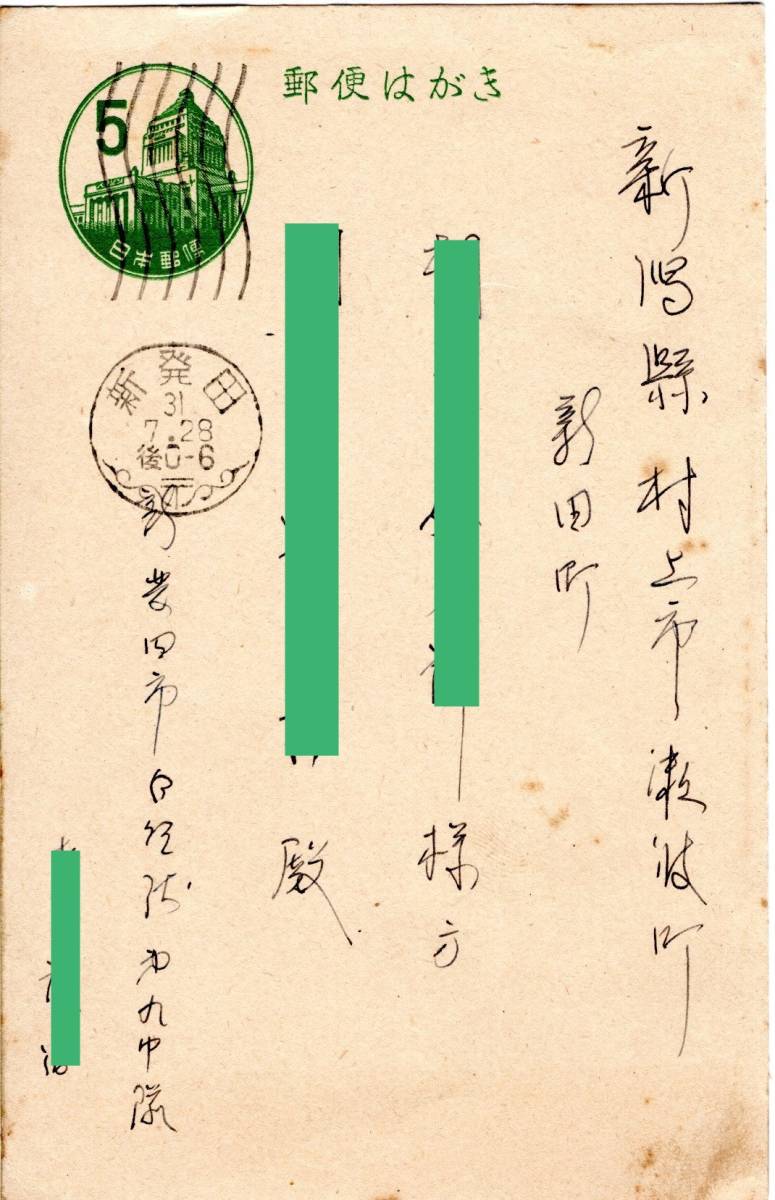 郵便はがき
5
日本郵便
新発田
31
7.28
後0-6
新潟縣村上市瀬波町
新田町
様方
殿
新発田市自衛隊第九中隊